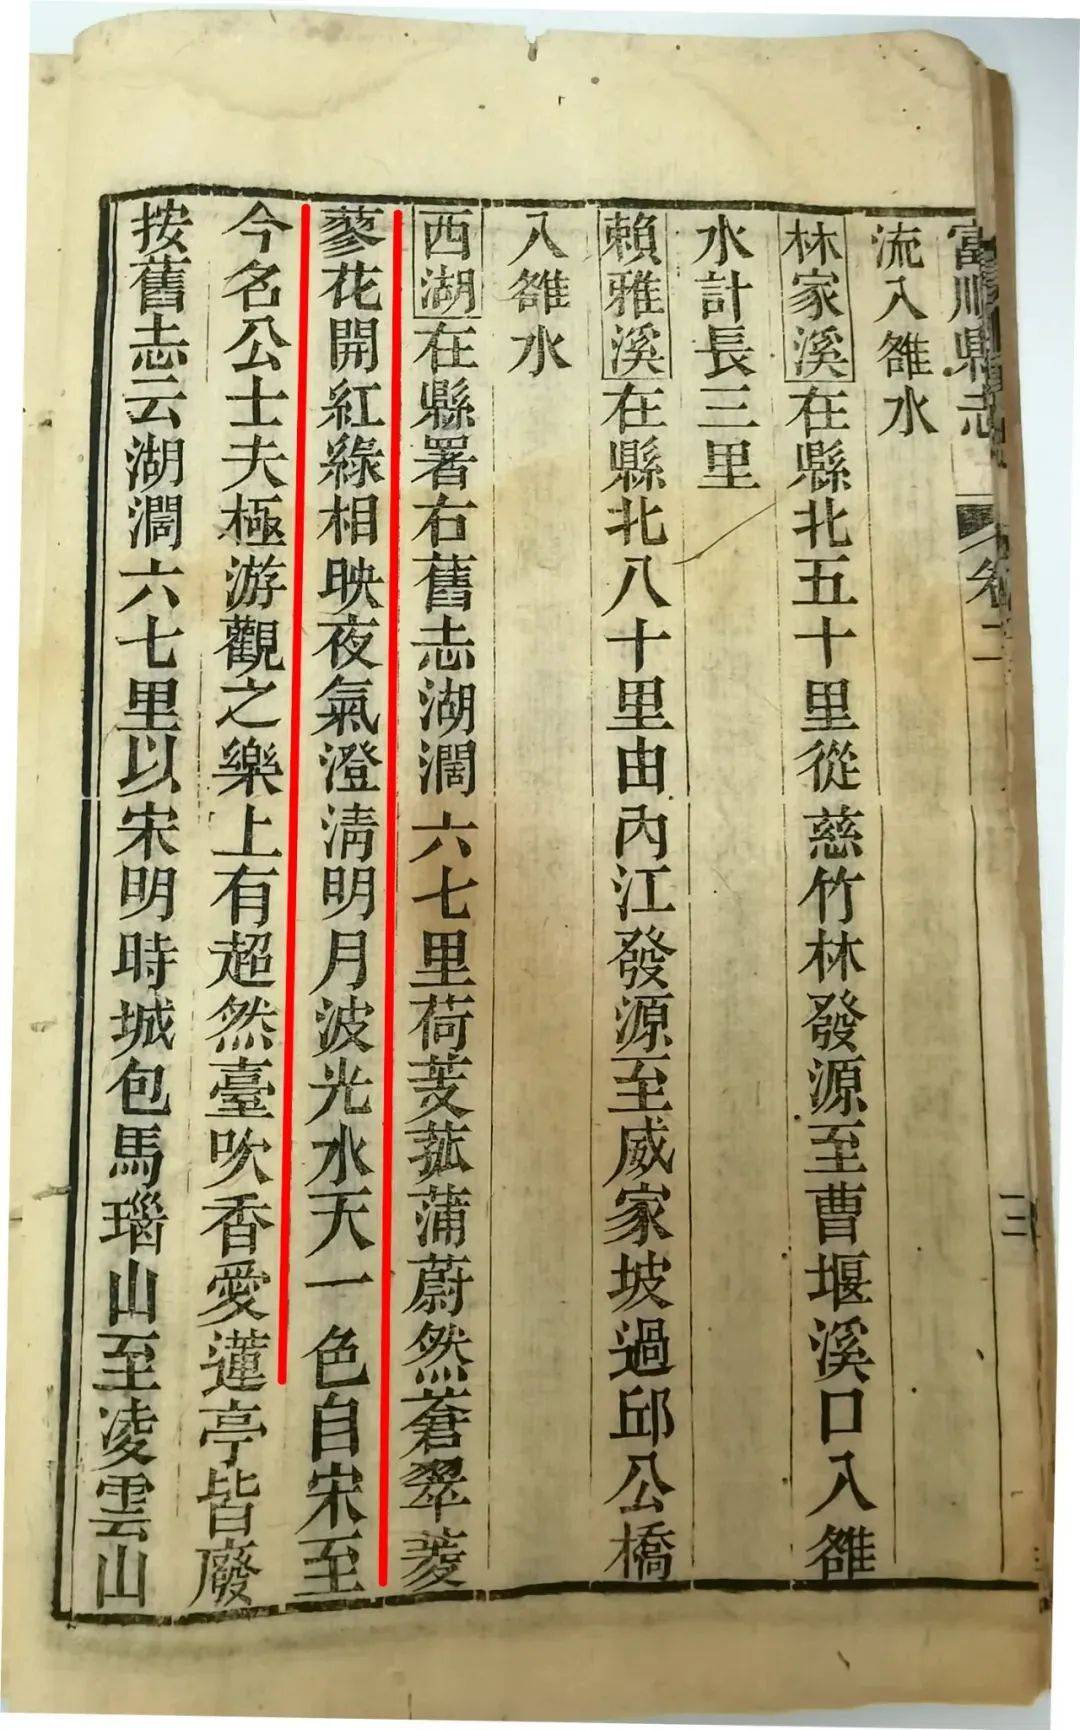 富順縣志
卷二
三
流入雒水
林家溪在縣北五十里從慈竹林發源至曹堰溪口入雒
水計長三里
賴雅溪在縣北八十里由內江發源至威家坡過邱公橋
入雒水
西湖在縣署右舊志湖濶六七里荷芰菰蒲蔚然蒼翠菱
蓼花開紅綠相映夜氣澄淸明月波光水天一色自宋至
今名公士夫極游觀之樂上有超然臺吹香愛蓮亭皆廢
按舊志云湖濶六七里以宋明時城包馬瑙山至凌雲山